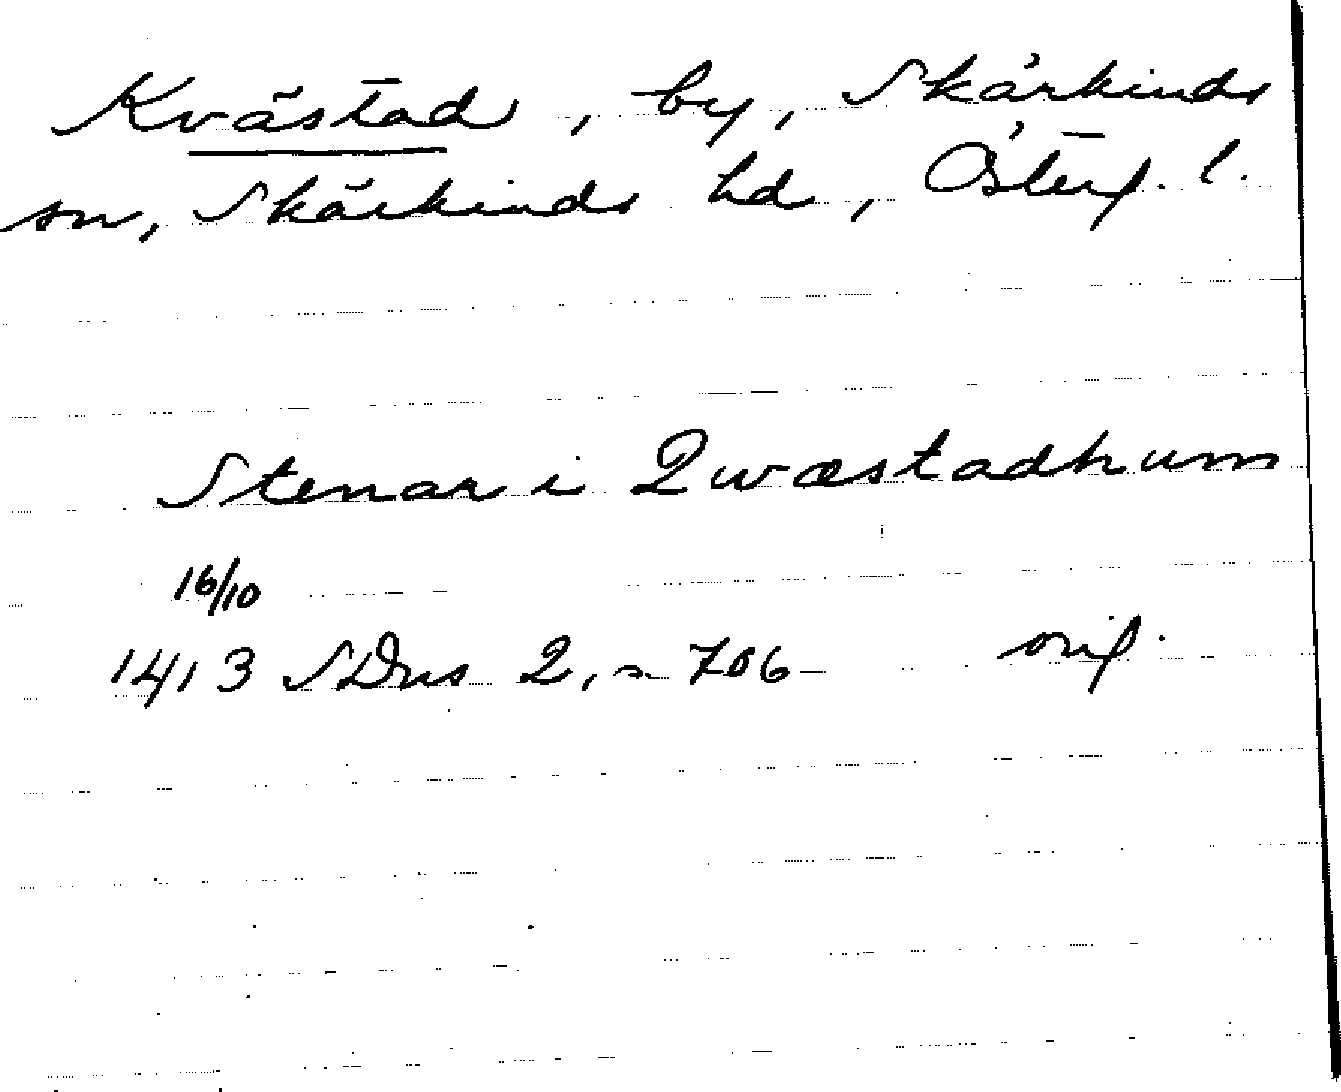 Kvästad, by, Skärkinds
sn, Skärkinds hd, Österg. l.
Stenar i Qwæstadhum
16/10
1413 SDns 2, s. 706 orig.